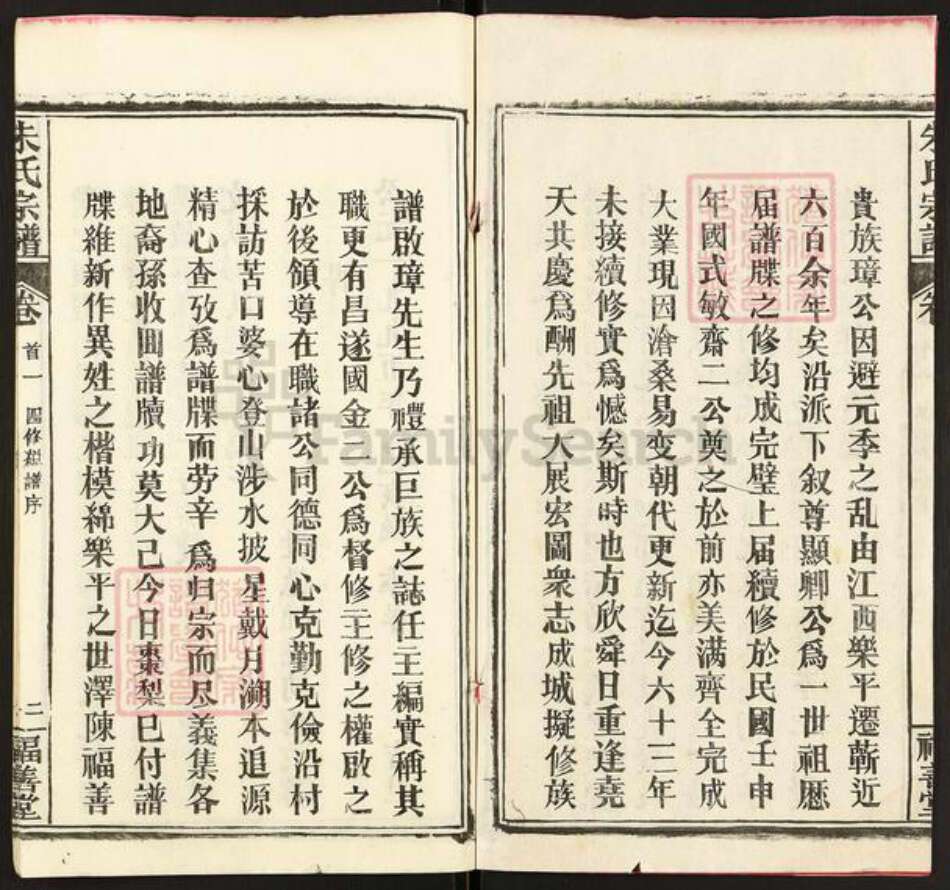 貴族璋公因避元季之乱由江西樂平遷蘄近
六百余年矣沿派下叙尊顯卿公爲一世祖歷
届譜牒之修均成完璧上届續修於民國壬申
年國式敏齋二公奠之於前亦美满齊全完成
大業現因滄桑易变朝代更新迄今六十三年
未接續修實爲憾矣斯時也方欣舜日重逢堯
天共慶爲酬先祖大展宏圖衆志成城擬修族
譜啟璋先生乃禮承巨族之誌任主編實稱其
職更有昌遂國金二公爲督修主修之權啟之
於後領導在職諸公同德同心克勤克儉沿村
採訪苦口婆心登山涉水披星戴月溯本追源
精心查攷爲譜牒而劳辛爲归宗而尽義集各
地裔孫收回譜牘功莫大已今日棗梨已付譜
牒維新作異姓之楷模綿樂平之世澤陳福善
朱氏宗譜 卷 首一 四修 譜序 二 福善堂
FamilySearch